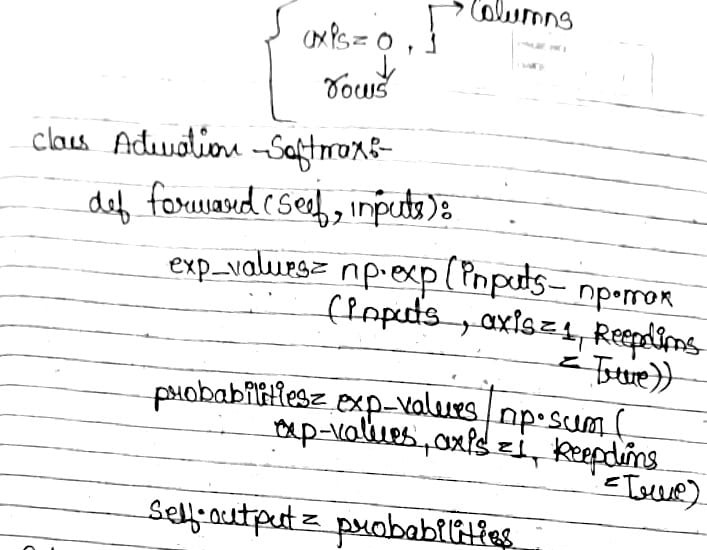 Columns
axis = 0, 1
rows
class Activation-Softmax:-
def forward(self, inputs):
exp_values = np.exp(inputs - np.max
(inputs, axis=1, keepdims
= True))
probabilities = exp-values / np.sum(
exp-values, axis=1, keepdims
= True)
self.output = probabilities